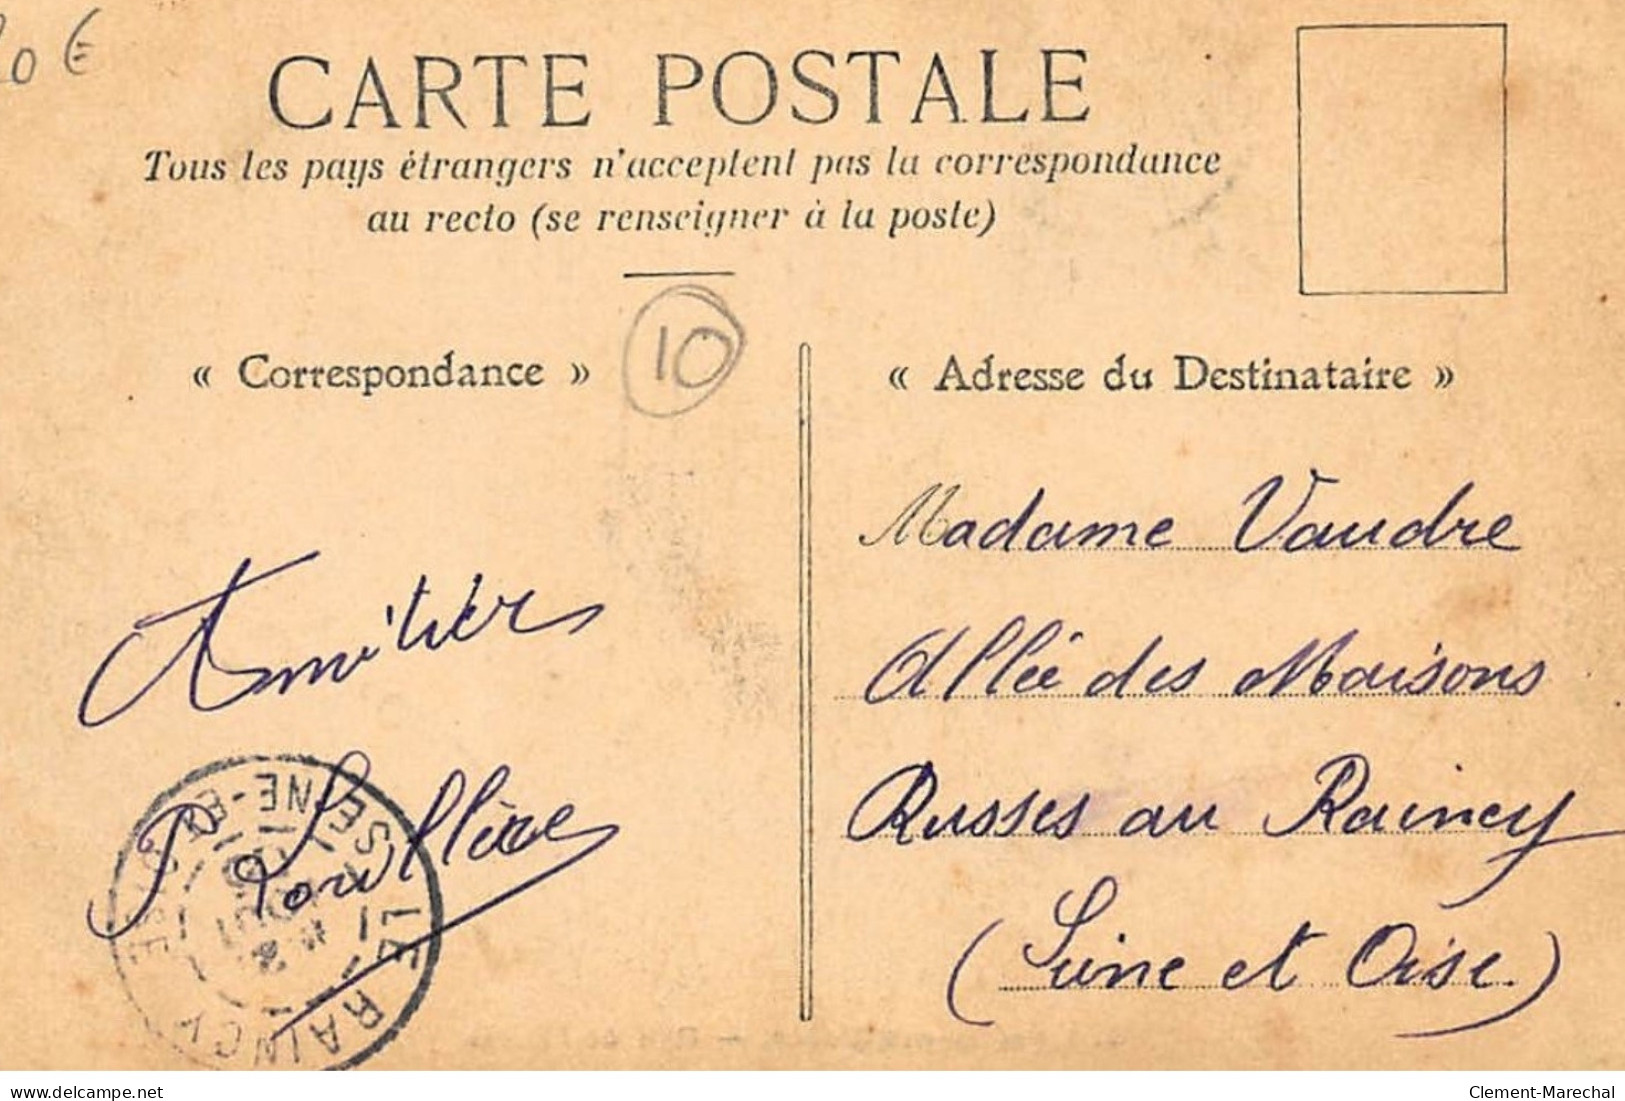 0 €
CARTE POSTALE
Tous les pays étrangers n'acceptent pas la correspondance
au recto (se renseigner à la poste)
10
« Correspondance »
« Adresse du Destinataire »
Amitiés
Madame Vaudre
Allée des Maisons
Russes au Raincy
(Seine et Oise)
LE RAINCY
SEINE-ET-OISE
delcampe.net
Clement-Marechal